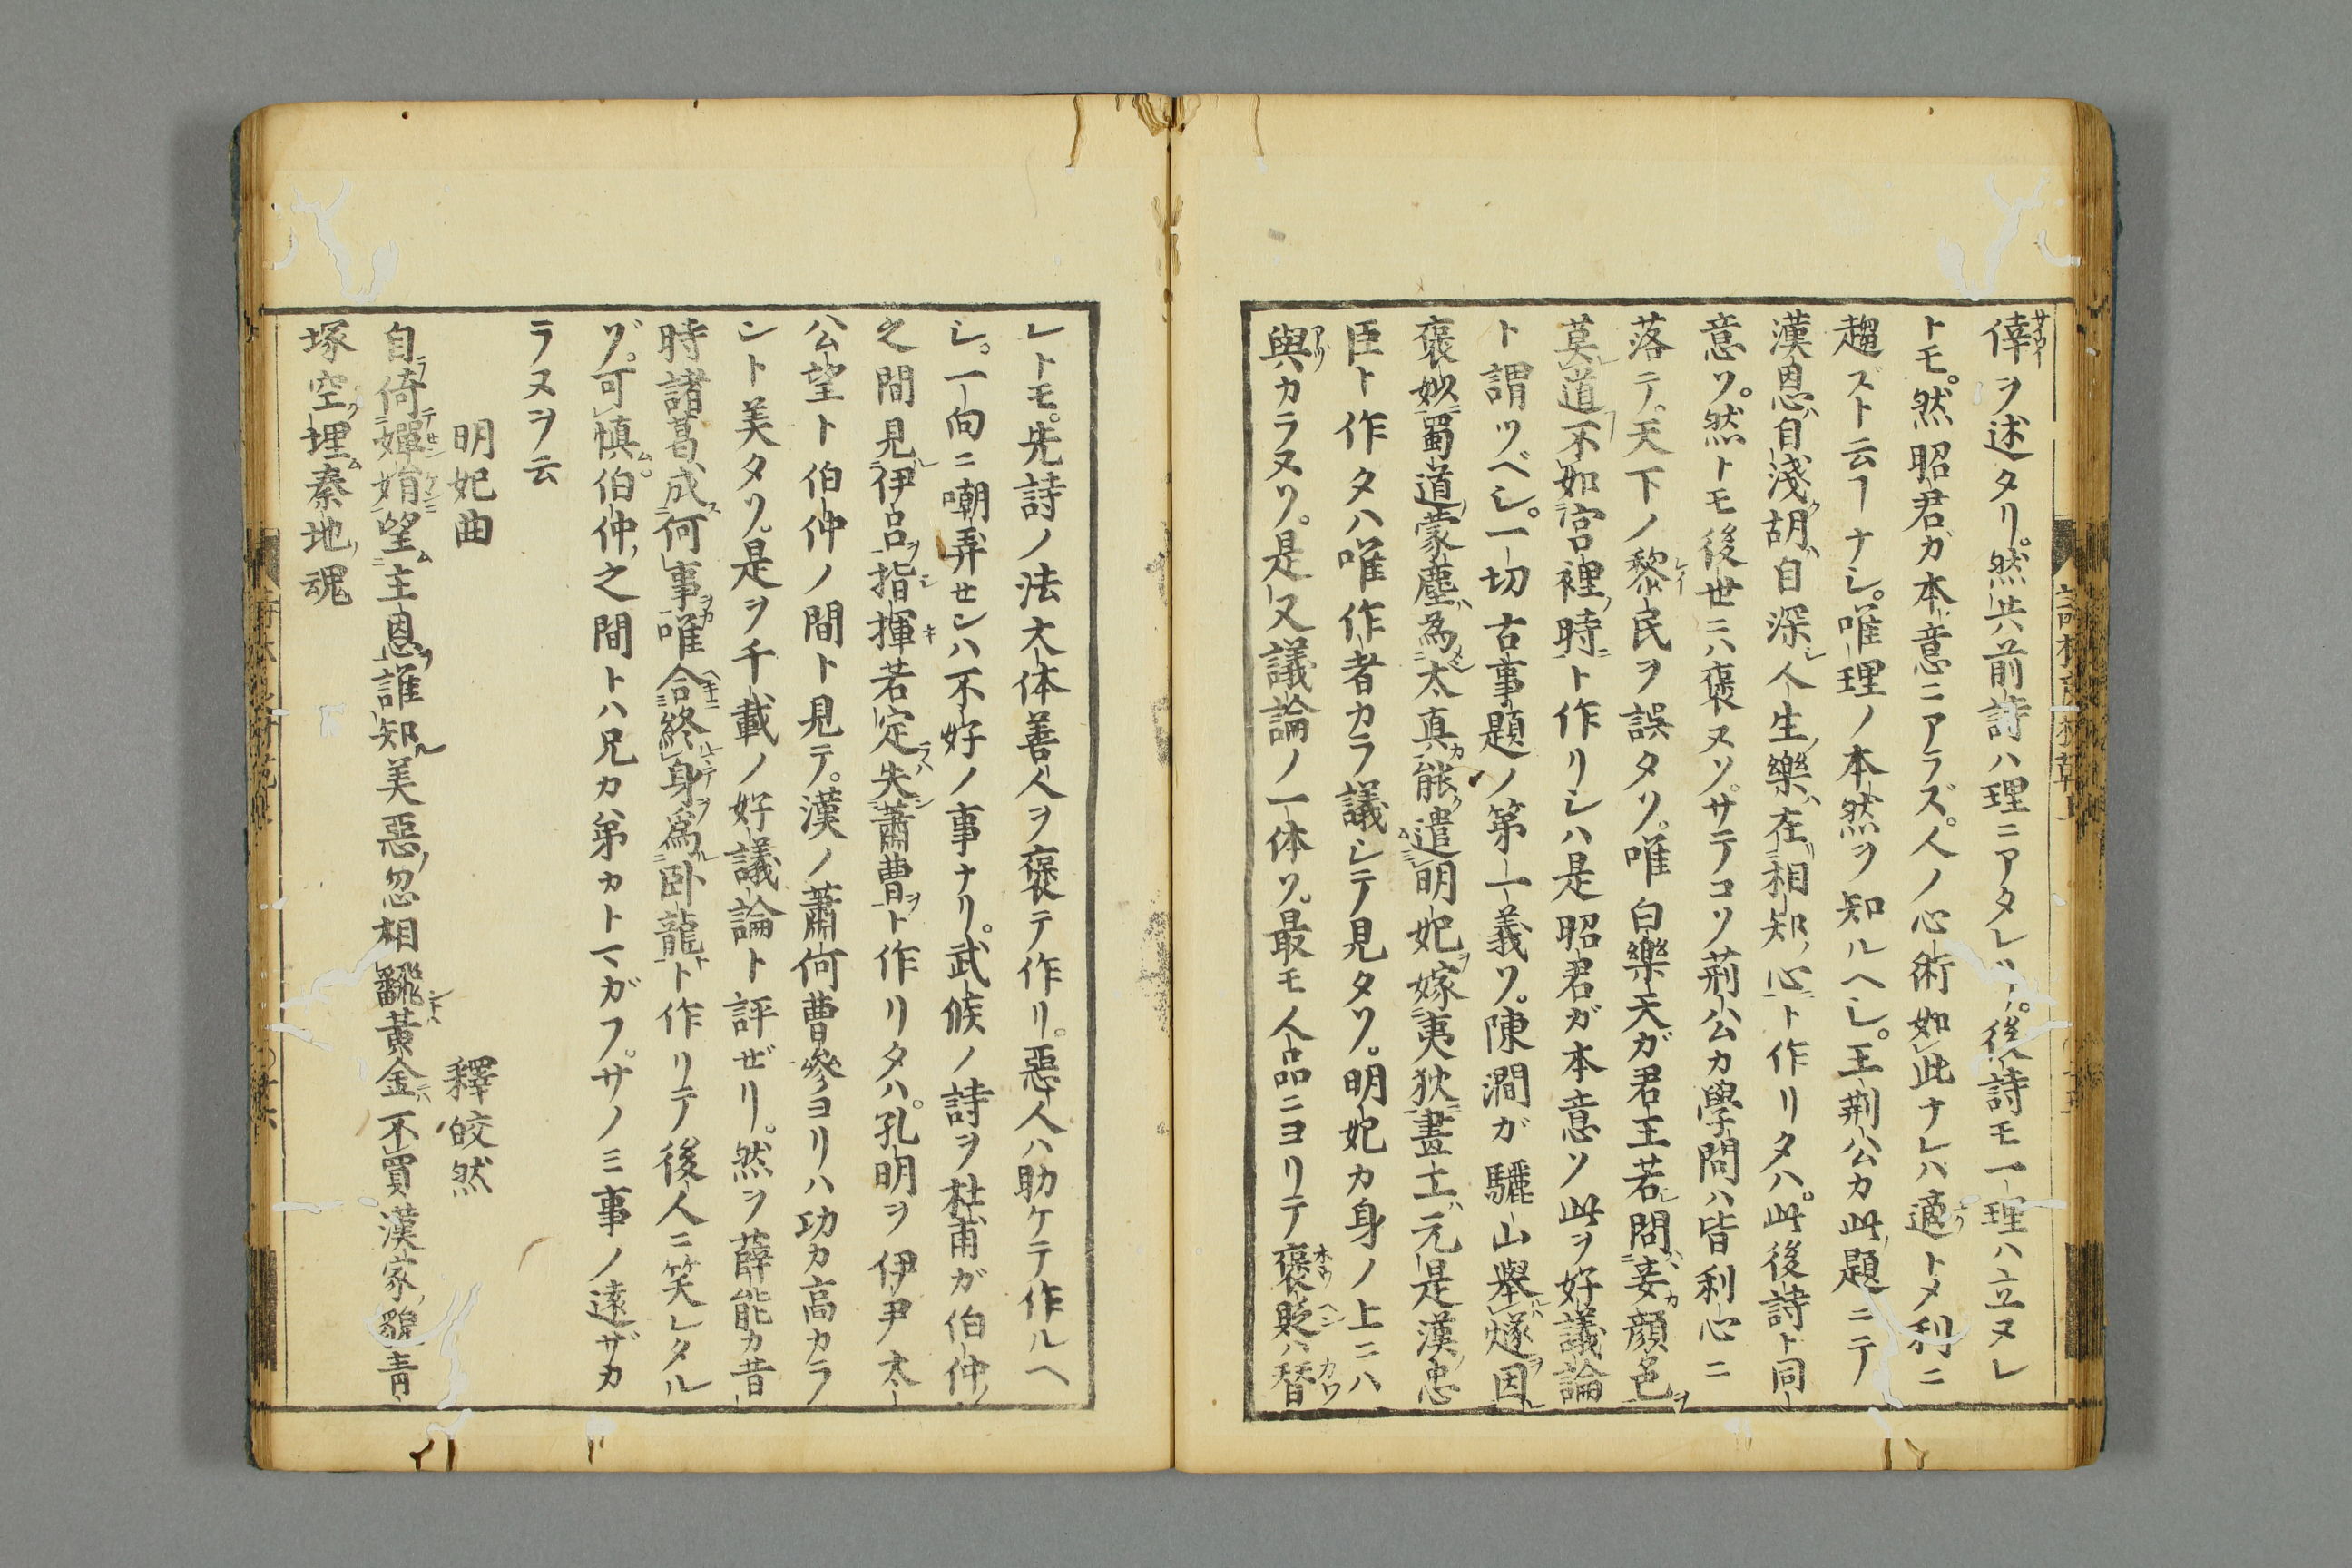 倖ヲ述タリ。然共前詩ハ理ニアタレリ。後詩モ一理ハ立ヌレ
トモ。然昭君ガ本意ニアラズ。人ノ心術如此ナレハ適トメ利ニ
趨ズト云フナシ。唯理ノ本然ヲ知ルヘシ。王荊公カ此題ニテ
漢恩自淺胡自深人生樂在相知心ト作リタハ。此後詩ト同
意ソ。然トモ後世ニハ褒ヌソ。サテコソ荊公カ學問ハ皆利心ニ
落テ。天下ノ黎民ヲ誤タソ。唯白樂天ガ君王若問妾顔色
莫道不如宮裡時ト作リシハ是昭君ガ本意ソ此ヲ好議論
ト謂ツベシ。一切古事題ノ第一義ソ。陳澗ガ驪山舉燧因
褒姒蜀道蒙塵為太真能遣明妃嫁夷狄畫士元是漢忠
臣ト作タハ唯作者カラ議シテ見タソ。明妃カ身ノ上ニハ
與カラヌソ。是又議論ノ一体ソ。最モ人品ニヨリテ褒貶ハ替
レトモ。先詩ノ法大体善人ヲ褒テ作リ。惡人ハ助ケテ作ルヘ
シ。一向ニ嘲弄センハ不好ノ事ナリ。武候ノ詩ヲ杜甫ガ伯仲
之間見伊呂指揮若定失蕭曹ト作リタハ。孔明ヲ伊尹太
公望ト伯仲ノ間ト見テ。漢ノ蕭何曹參ヨリハ功カ高カラ
ント美タソ。是ヲ千載ノ好議論ト評ゼリ。然ヲ薛能カ昔
時諸葛成何事唯合終身為臥龍ト作リテ後人ニ笑レタル
ゾ。可慎。伯仲之間トハ兄カ弟カトマガフ。サノミ事ノ遠ザカ
ラヌヲ云
明妃曲
釋皎然
自倚嬋娟望主恩誰知美惡忽相飜黃金不買漢家貌青
塚空埋秦地魂